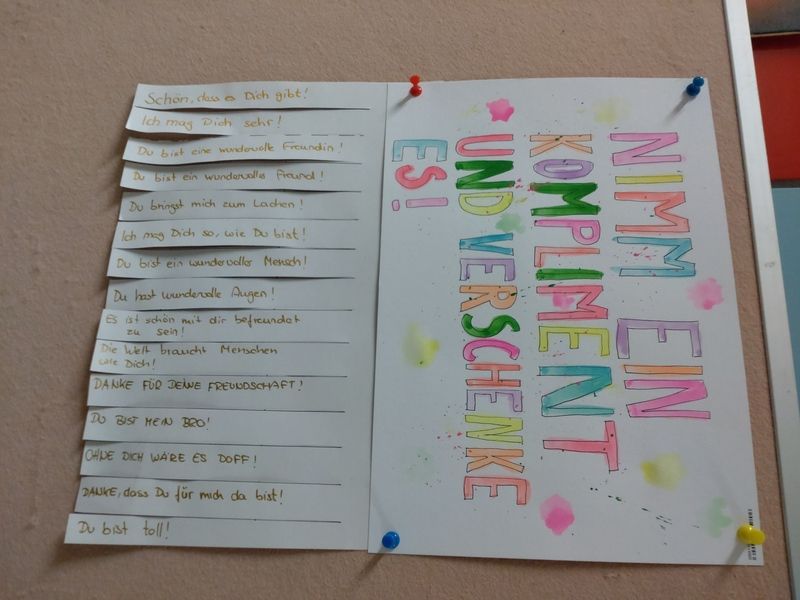 NIMM EIN
KOMPLIMENT
UND VERSCHENKE
ES!
Schön, dass es Dich gibt!
Ich mag Dich sehr!
Du bist eine wundervolle Freundin!
Du bist ein wundervoller Freund!
Du bringst mich zum Lachen!
Ich mag Dich so, wie Du bist!
Du bist ein wundervoller Mensch!
Du hast wundervolle Augen!
Es ist schön mit dir befreundet
zu sein!
Die Welt braucht Menschen
wie Dich!
DANKE FÜR DEINE FREUNDSCHAFT!
DU BIST MEIN BRO!
OHNE DICH WÄRE ES DOFF!
DANKE, dass Du für mich da bist!
Du bist toll!